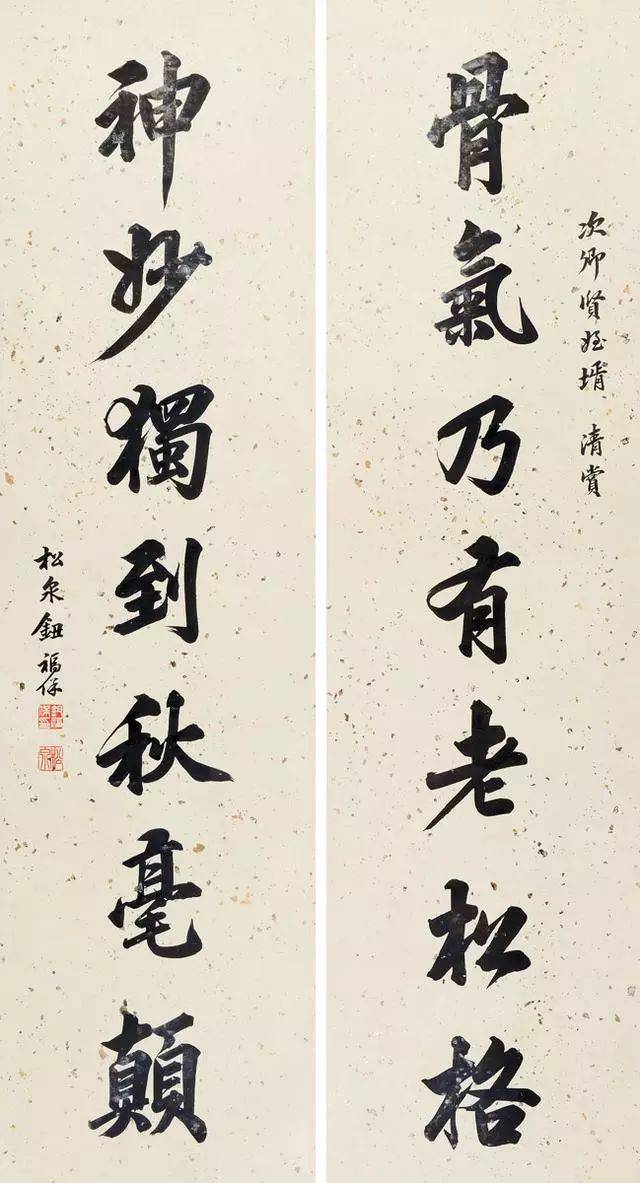 次卿贤侄壻 清赏
骨氣乃有老松格
神妙獨到秋毫顛
松泉鈕福保